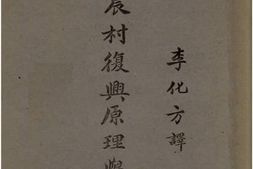 李化方譯
農村復興原理